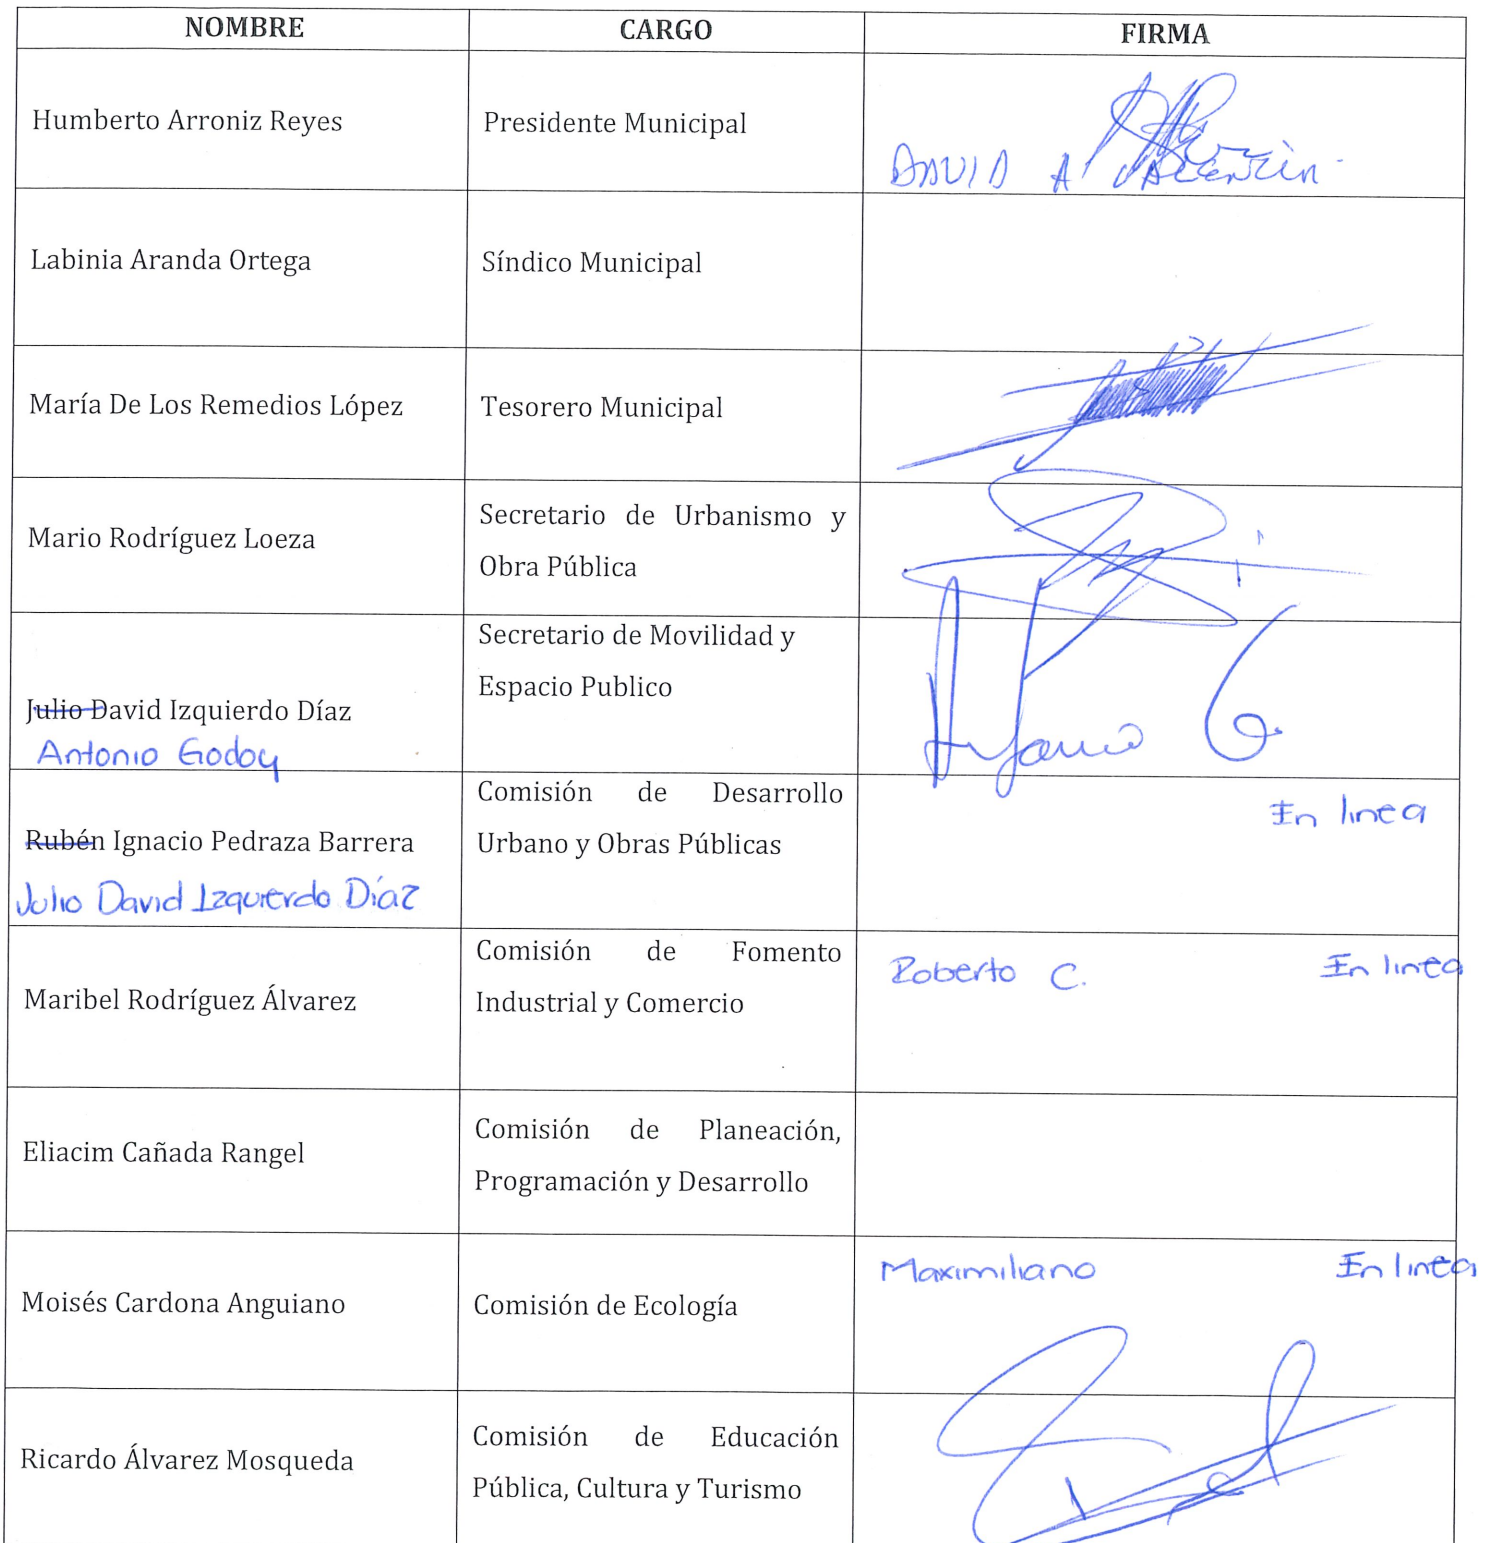 NOMBRE CARGO FIRMA
Humberto Arroniz Reyes Presidente Municipal
DAVID A.
Labinia Aranda Ortega Síndico Municipal
María De Los Remedios López Tesorero Municipal
Mario Rodríguez Loeza
Secretario de Urbanismo y
Obra Pública
Julio David Izquierdo Díaz
Antonio Godoy
Secretario de Movilidad y
Espacio Publico
Rubén Ignacio Pedraza Barrera
Julio David Izquierdo Díaz
Comisión de Desarrollo
Urbano y Obras Públicas
En linea
Maribel Rodríguez Álvarez
Comisión de Fomento
Industrial y Comercio
Roberto C. En linea
Eliacim Cañada Rangel
Comisión de Planeación,
Programación y Desarrollo
Moisés Cardona Anguiano
Comisión de Ecología
Maximiliano En linea
Ricardo Álvarez Mosqueda
Comisión de Educación
Pública, Cultura y Turismo